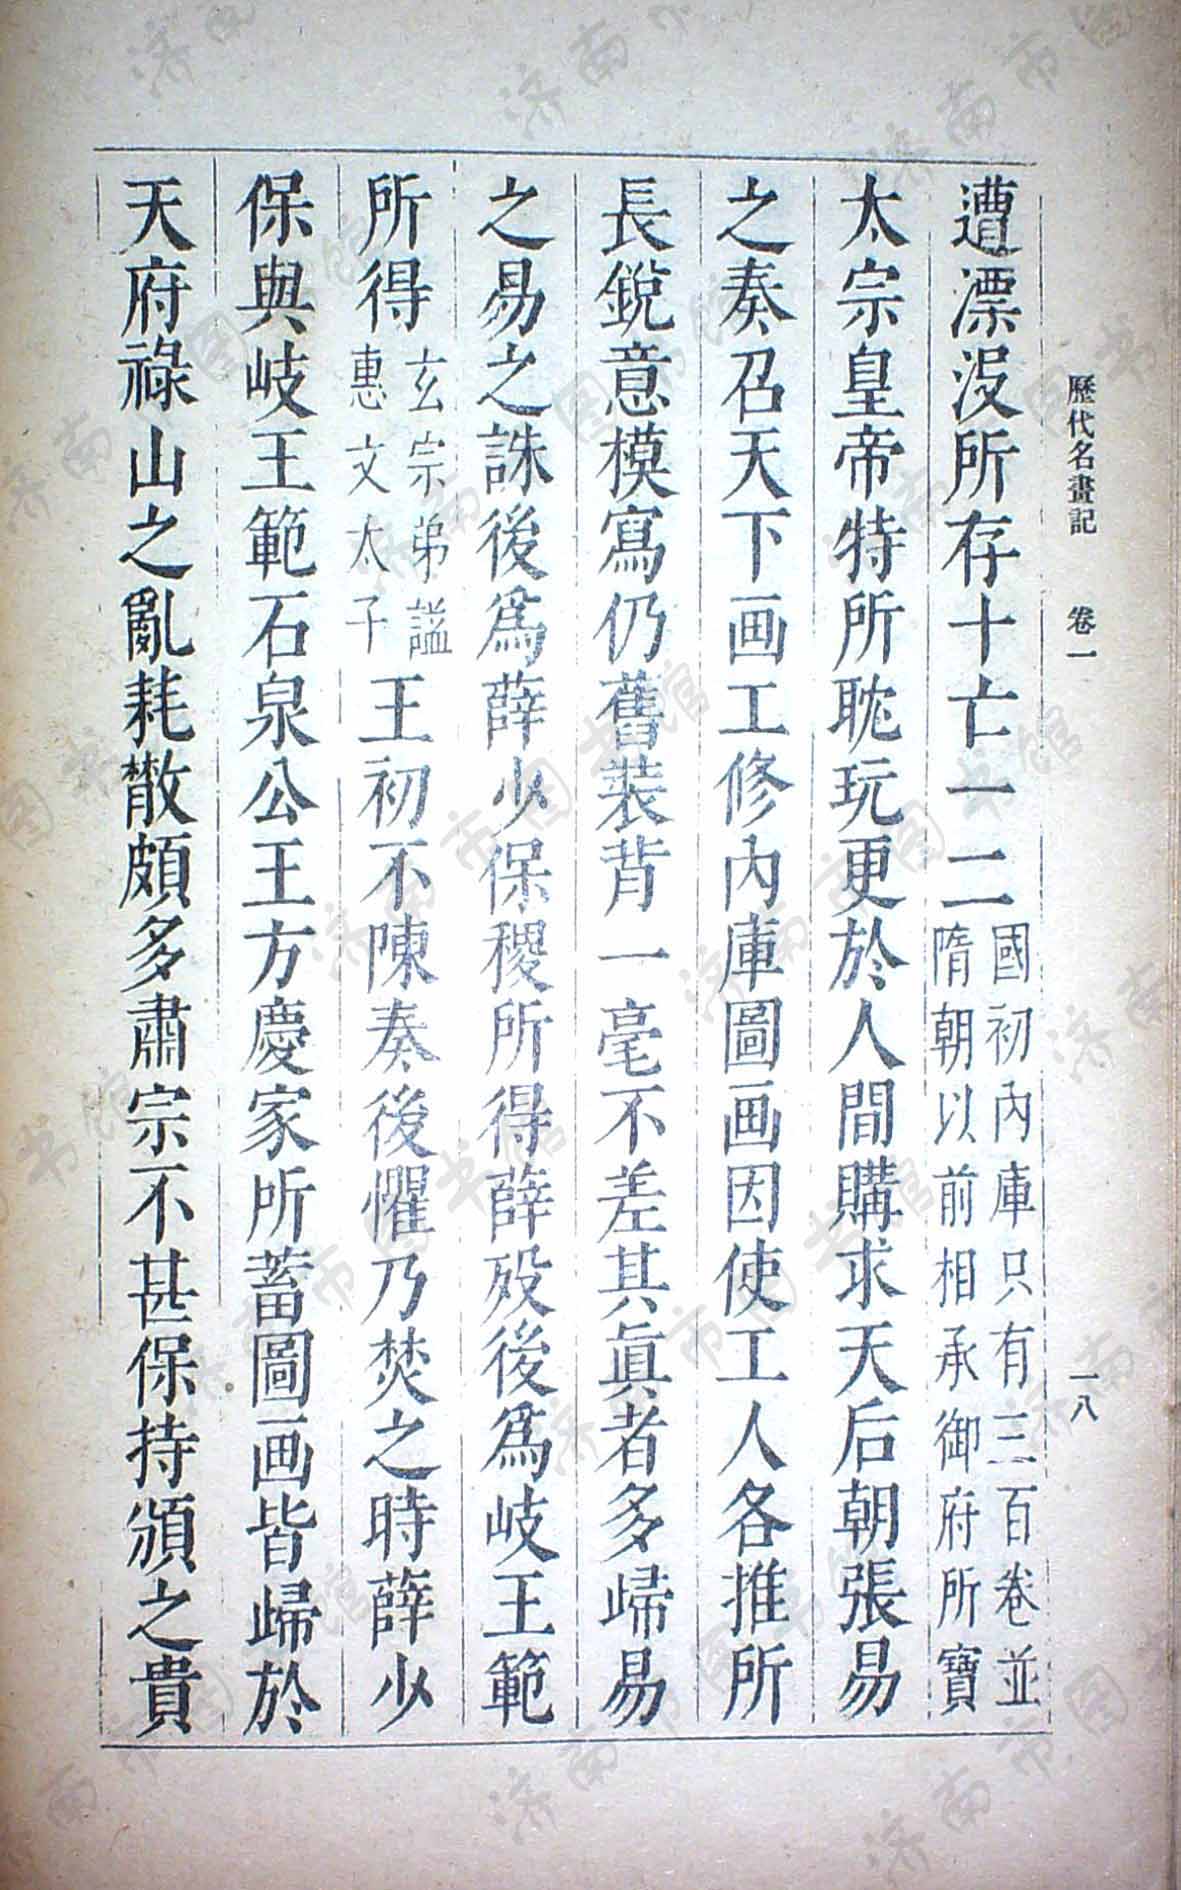 歷代名畫記　卷一　一八
遭漂沒所存十亡一二國初內庫只有三百卷並隋朝以前相承御府所寶
太宗皇帝特所耽玩更於人間購求天后朝張易
之奏召天下画工修內庫圖画因使工人各推所
長銳意模寫仍舊裝背一毫不差其眞者多歸易
之易之誅後爲薛少保稷所得薛歿後爲岐王範
所得玄宗弟謚惠文太子王初不陳奏後懼乃焚之時薛少
保與岐王範石泉公王方慶家所蓄圖画皆歸於
天府祿山之亂耗散頗多肅宗不甚保持頒之貴
济南市图书馆